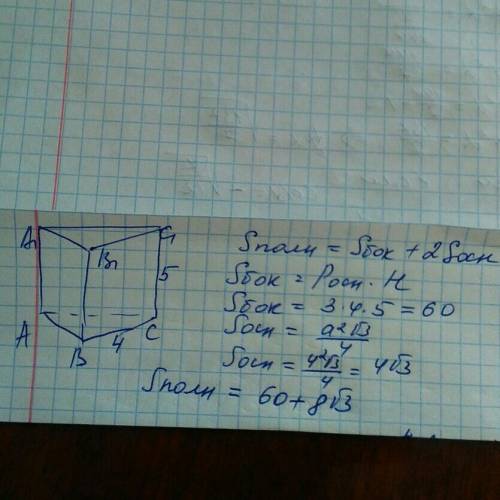 A₁ C₁
B₁
5
A C
B 4
Sполн = Sбок + 2Sосн
Sбок = Pосн · H
Sбок = 3·4·5 = 60
Sосн = a²√3/4
Sосн = 4²√3/4 = 4√3
Sполн = 60+8√3